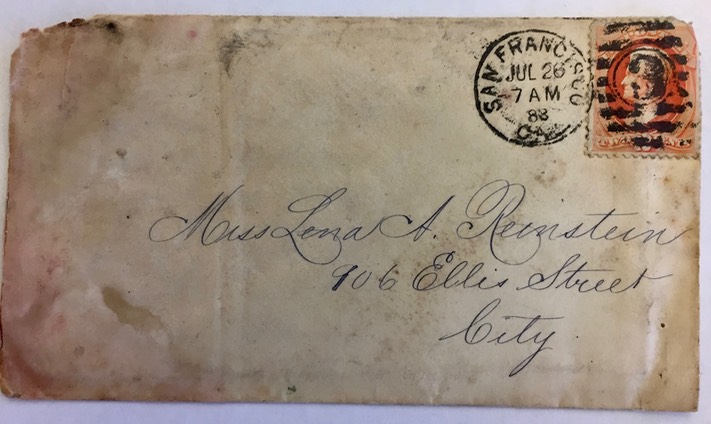 SAN FRANCISCO
JUL 26
7 AM
83
CAL.
3
Miss Lena A. Reinstein
906 Ellis Street
City